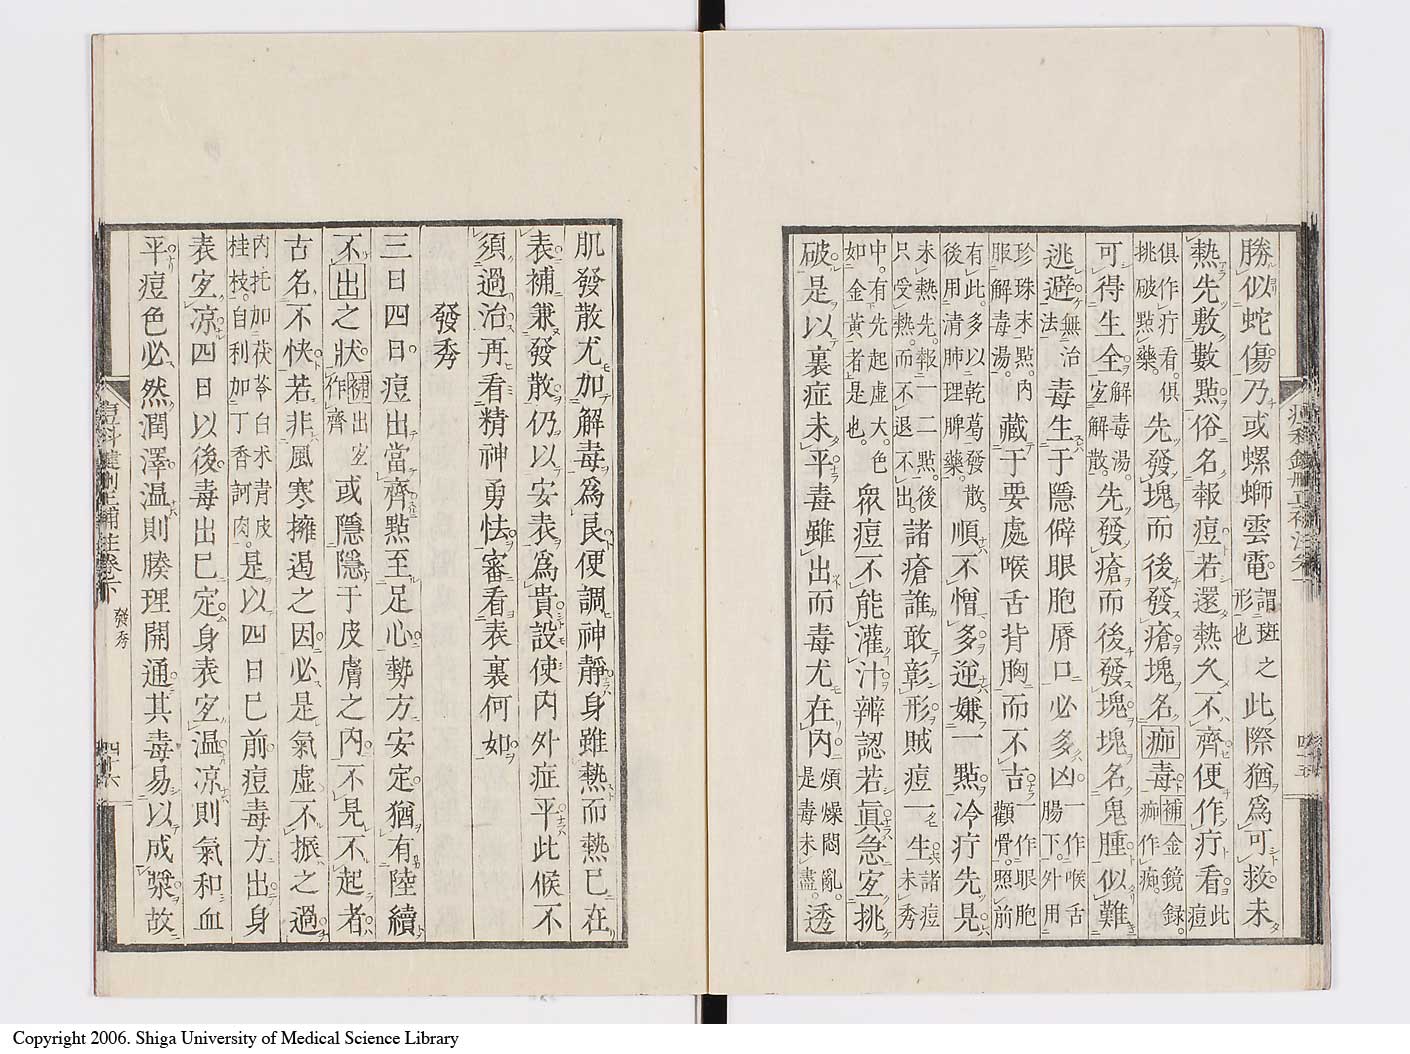 勝似蛇傷乃或螺螄雲電謂斑形也之此際猶爲可救未
熱先敷數點俗名報痘若還熱久不齊便作疔看此痘
俱作疔看。俱挑破點藥。先發塊而後發瘡塊名痂毒補金鏡録。痂作痴。
可得生全解毒湯。宜解散。先發瘡而後發塊塊名鬼腫似難
逃避無治法毒生于隱僻眼胞唇口必多凶一作喉舌腸下。外用
珍珠末點。内服解毒湯。藏于要處喉舌背胸而不吉一作眼胞顴骨。照前
有此。多以乾葛發散。後用清肺理脾藥。順不憎多逆嫌一點冷疔先見
未熱先。報一二點。後只受熱。而不退不出。諸瘡誰敢彰形賊痘一名生諸痘未秀
中。有先起虛大。色如金黃者是也。衆痘不能灌汁辨認若眞急宜挑
破是以裏症未平毒雖出而毒尤在内煩燥悶亂。是毒未盡。透
肌發散尤加解毒爲良便調神靜身雖熱而熱已在
表補兼發散仍以安表爲貴設使内外症平此候不
須過治再看精神勇怯審看表裏何如
發秀
三日四日痘出當齊點至足心勢方安定猶有陸續
不出之狀補出宜作齊或隱隱于皮膚之内不見不起者
古名不快若非風寒擁遏之因必是氣虛不振之過
内托加茯苓白朮青皮桂枝。自利加丁香訶肉。是以四日已前痘毒方出身
表宜凉四日以後毒出已定身表宜温凉則氣和血
平痘色必然潤澤温則腠理開通其毒易以成漿故
痘科鍵刪正補註卷下
發秀
四十六
Copyright 2006. Shiga University of Medical Science Library